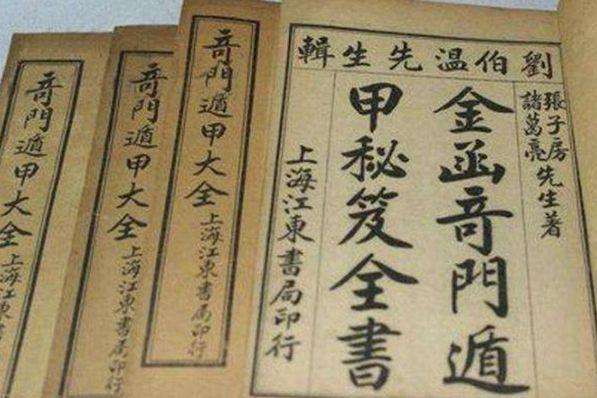 劉伯温先生輯
張子房
諸葛亮
先生著
金函奇門遁
甲秘笈全書
上海江東書局印行
奇門遁甲大全
上海江東書局印行
奇門遁甲大全
上海江東書局印行
奇門遁甲大全
上海江東